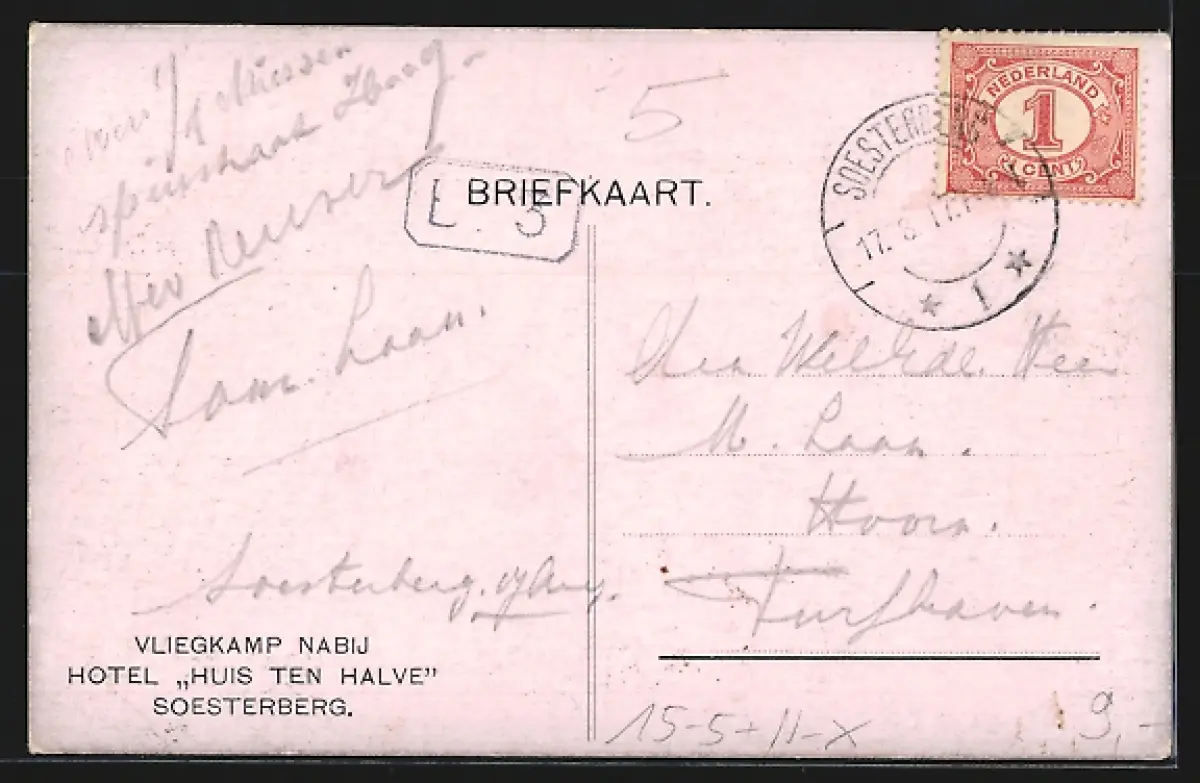 5
spuistraat Haag.
Laan.
L. 5
BRIEFKAART.
NEDERLAND
1
1 CENT
SOESTERBERG
17. 8. 17.
1
Den WelEdel. Heer
M. Laan.
Hoorn.
Turfhaven.
Soesterberg. 17 Aug.
VLIEGKAMP NABIJ
HOTEL „HUIS TEN HALVE”
SOESTERBERG.
15-5+11-X
9,-